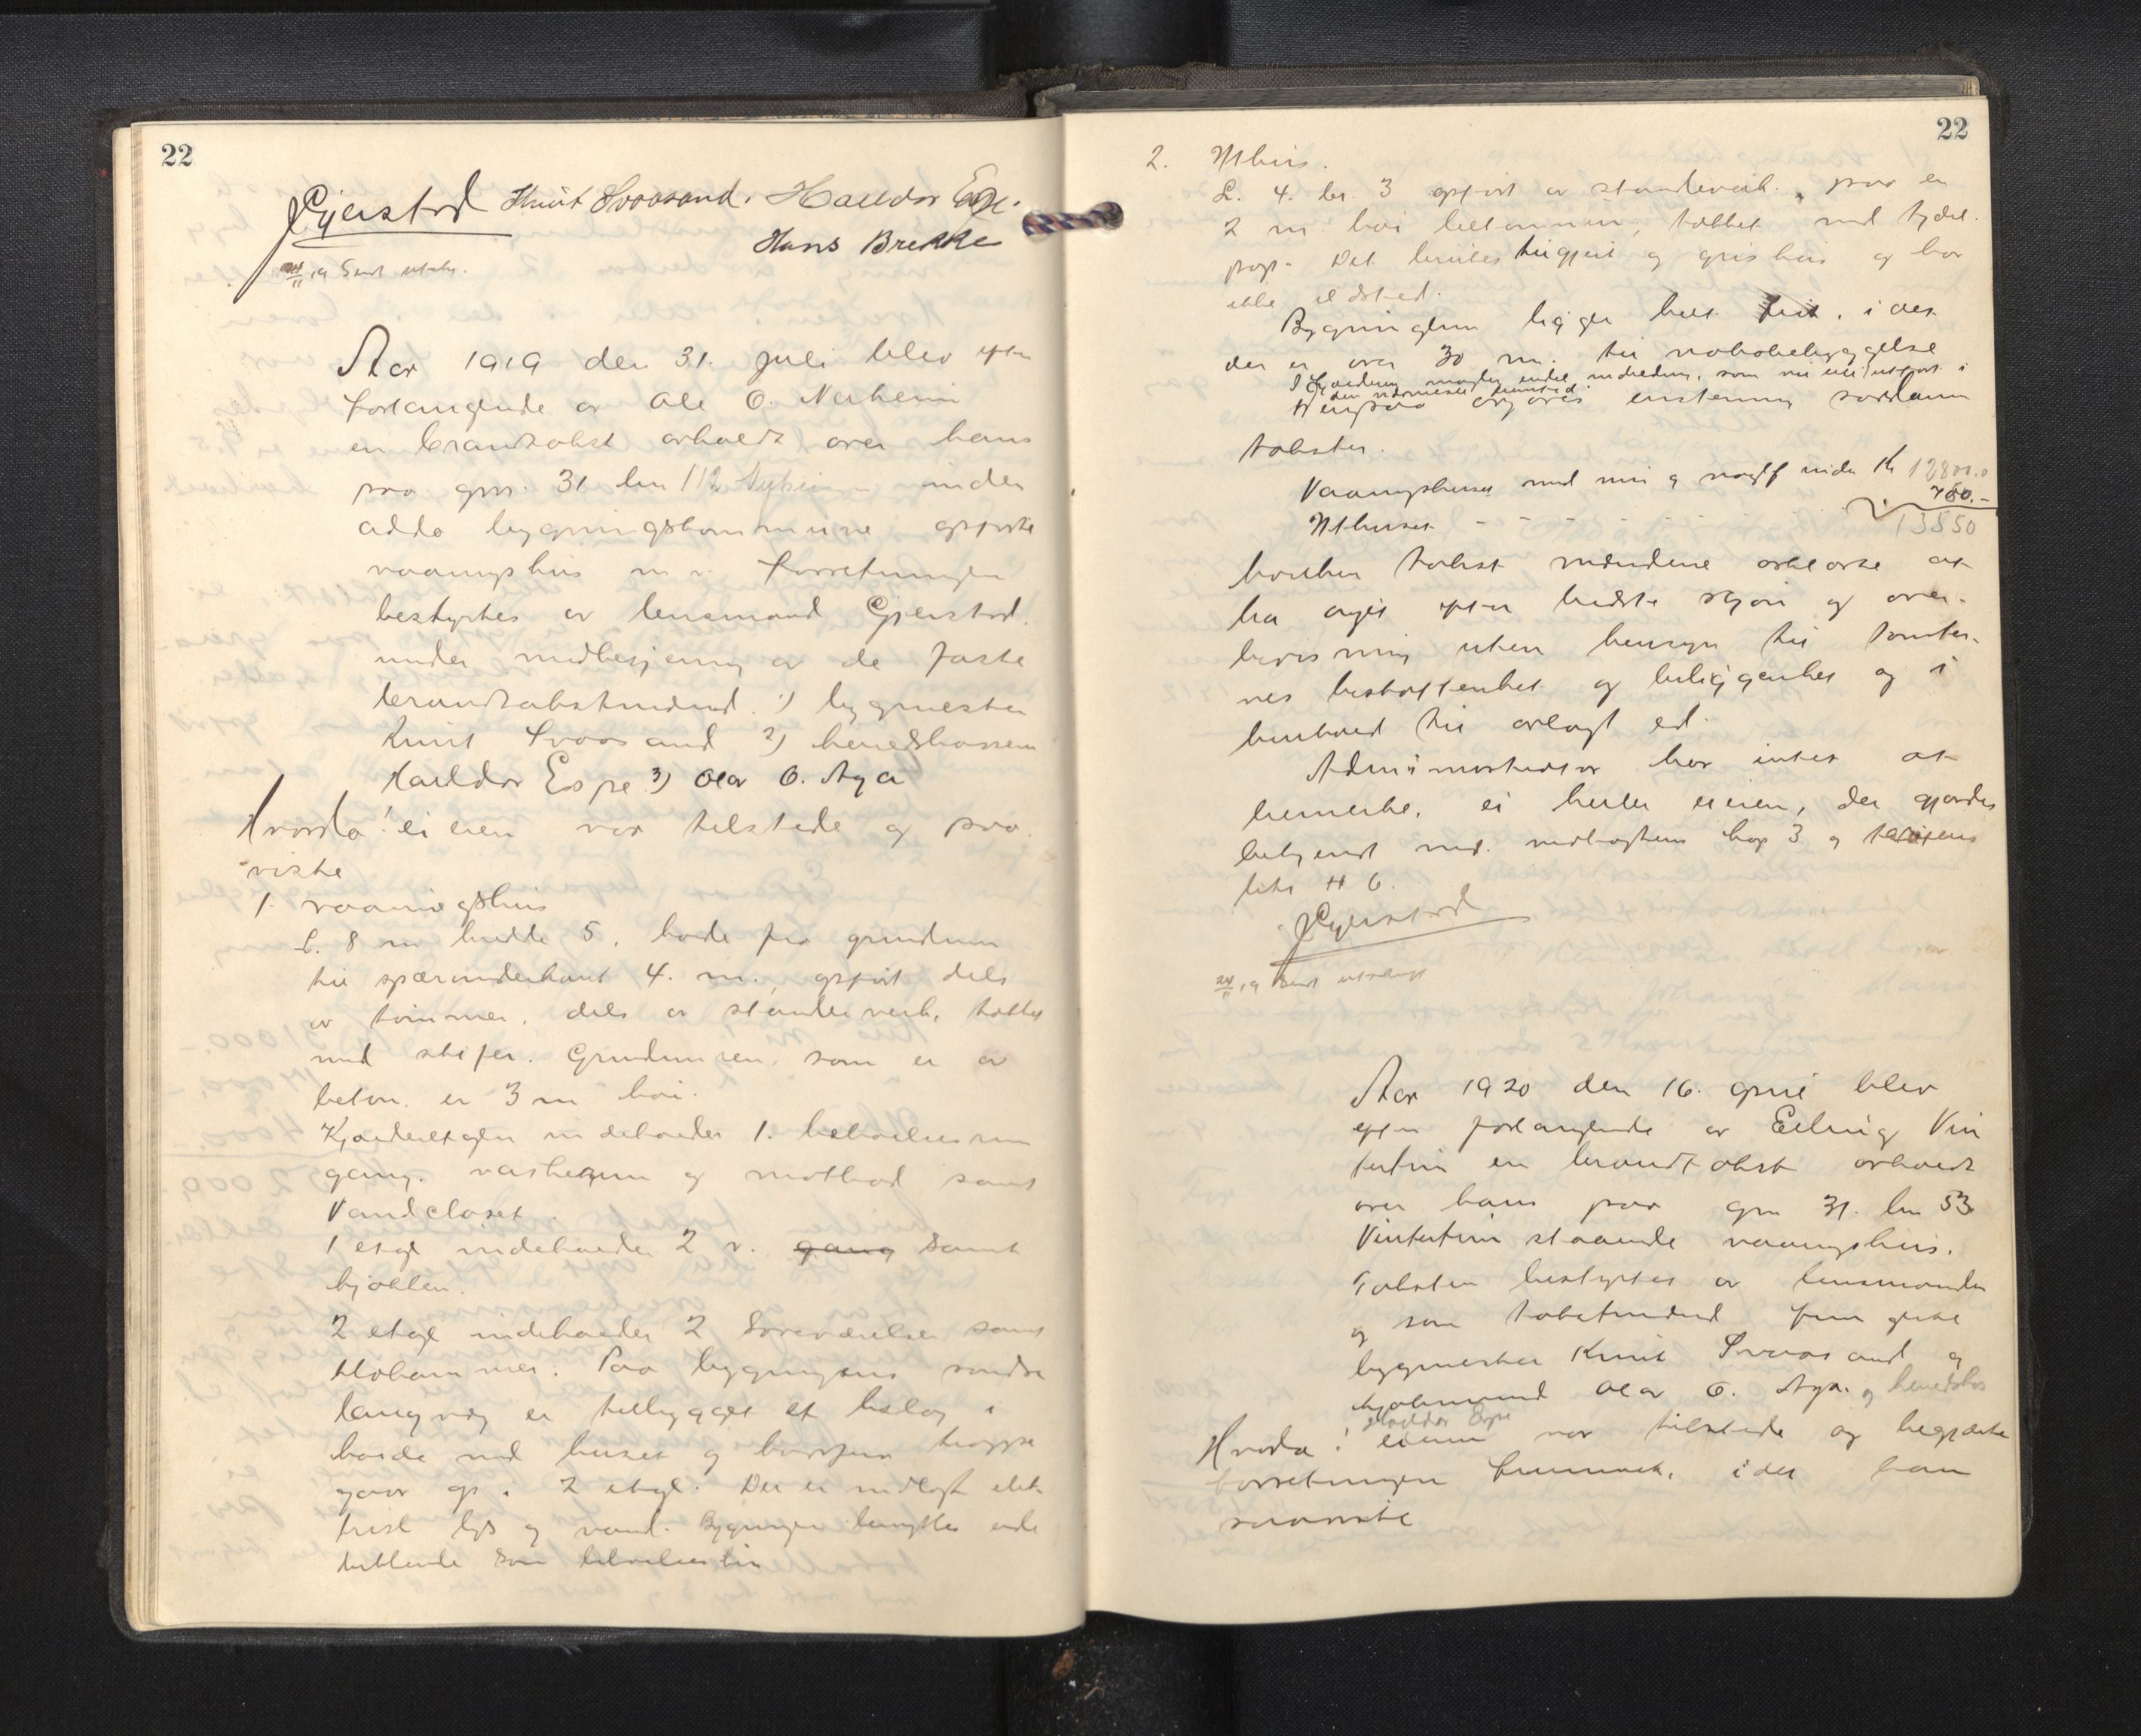 22
Gjerstad Knut Svaasand. Halldor Espe.
Hans Brekke
24/11 19 Sendt utskr.
Aar 1919 den 31. juli blev efter
forlangende av Ole O. Nerheim
en brandtakst avholdt over hans
paa gnr. 31 bnr 112 Nyheim under
Odda bygningskommune opførte
vaaningshus m.v. Forretningen
bestyrtes av lensmand Gjerstad
under medbetjening av de faste
brandtakstmænd. 1) bygmester
Knut Svaasand 2) herredskasserer
Halldor Espe 3) Olav O. Aga
Hvorda! eieren var tilstede og paa
viste
1. vaaningshus
L. 8 m bredde 5, høide fra grundmur
til spærunderkant 4. m., opført dels
av tømmer, dels av stenderverk, tækket
med skifer. Grundmuren, som er av
beton er 3 m høi.
Kjælderetagen indeholder 1. beboelsesrum
gang. vaskerum og matbod samt
Vandcloset.
1 etage indeholder 2 v. gang samt
kjøkken.
2 etage indeholder 2 soveværelser samt
klokammer. Paa bygningens søndre
langvæg er tilbygget et bislag i
høide med huset og hvorfra trappe
gaar op i 2 etage. Der er indlagt elek
trisk lys og vand. Bygningen benyttes ude
lukkende som beboelseshus
22
2. Uthus.
L. 4. br. 3 opført av stenderverk, paa en
2 m. høi betonmur, tækket med tjære
pap. Det brukes til gjeit og grishus og har
ikke ildsted.
Bygningen ligger helt frit, i det
der er over 30 m. til nabobebyggelse
I Kjælderen mangler endel indredning, som vil bli utført i
den nærmeste fremtid.
Herpaa avgaves enstemmig saadann
takster.
Vaaningshuset med mur og rør Kr 12800.0
Uthuset - - - - - - - 750.-
13550
hvilken takst mændene erklærte at
ha avgit efter bedste skjøn og over-
bevisning uten hensyn til tomter-
nes beskaffenhet og beliggenhet og i
henhold til avlagt ed.
Administrator har intet at
bemerke, ei heller eieren, der gjordes
bekjendt med. vedtægtens kap 3 og tarifens
litr H 6.
Gjerstad
24/11 19 sendt utskrift
Aar 1920 den 16. april blev
efter forlangende av Erling Vin
tertun en brandtakst avholdt
over hans paa gnr 31. bnr 53
Vintertun staaende vaaningshus.
Taksten bestyrtes av lensmanden
og som takstmænd fungerte
bygmester Knut Svaasand og
skjønsmand Olav O. Aga. og herredskas
Halldor Espe
Hvorda! eieren var tilstede og begjærte
forretningen fremmet, idet han
paaviste